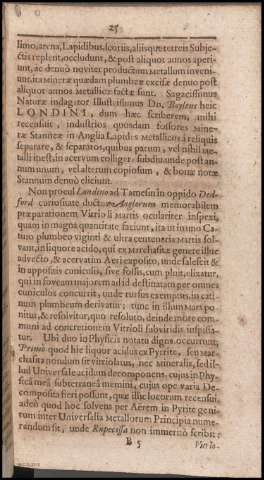 25
simo, arena, Lapidibus, scoriis, aliisque terreis Subje-
ctis replent, occludunt, & post aliquot annos aperi-
unt, ac denuò noviter productum Metallum inveni-
unt, ita Mineræ quædam plumbeæ excisæ denuo post
aliquot annos Metallicæ factæ sunt. Sagacissimus
Naturæ indagator Illustrissimus Dn. Boyleus heic
LONDINI, dum hæc scriberem, mihi
recensuit, industrios quosdam fossores Mine-
ræ Stanneæ in Anglia Lapides Metallicos à reliquis
separare, & separatos, quibus parum, vel nihil me-
talli inest, in acervum colligere subdiu unde post an-
num unum, vel alterum copiosum, & bonæ notæ
Stannum denuò eliciunt.
Non procul Londino ad Tamesin in oppido Ded-
ford curiositate ductus Anglorum memorabilem
præparationem Vitrioli Martis oculariter inspexi,
quam in magna quantitate faciunt, ita ut in uno Ca-
tino plumbeo viginti & ultra centenaria Martis sol-
vant, in liquore acido, qui ex marchasitæ genere illuc
advecto, & acervatim Aeri exposito, unde calescit &
in appositis cuniculis, sive fossis, cum pluit, elixatur,
qui in foveam majorem ad id destinatam per omnes
cuniculos concurrit, unde rursus exemptus, in cati-
num plumbeum derivatur; tunc in illum Mars po-
nitur, & resolvitur, quo resoluto, deinde more com-
muni ad concretionem Vitrioli subviridis inspissa-
tur. Ubi duo in Physicis notatu digna occurrunt,
Primò quod hic liquor acidus è Pyrite, seu Mar-
chasita nondum sit vitriolatus, nec Mineralis, sed il-
lud Universale acidum decomponens, cujus in Phy-
sica mea subterranea memini, cujus ope varia De-
composita fieri possunt, quæ illic locorum recensui,
adeò quod hoc solvens per Aërem in Pyrite geni-
tum inter Universalia Metallorum Principia nume-
randum sit, unde Rupecissa non immeritò scribit:
B 5
Vitrio-